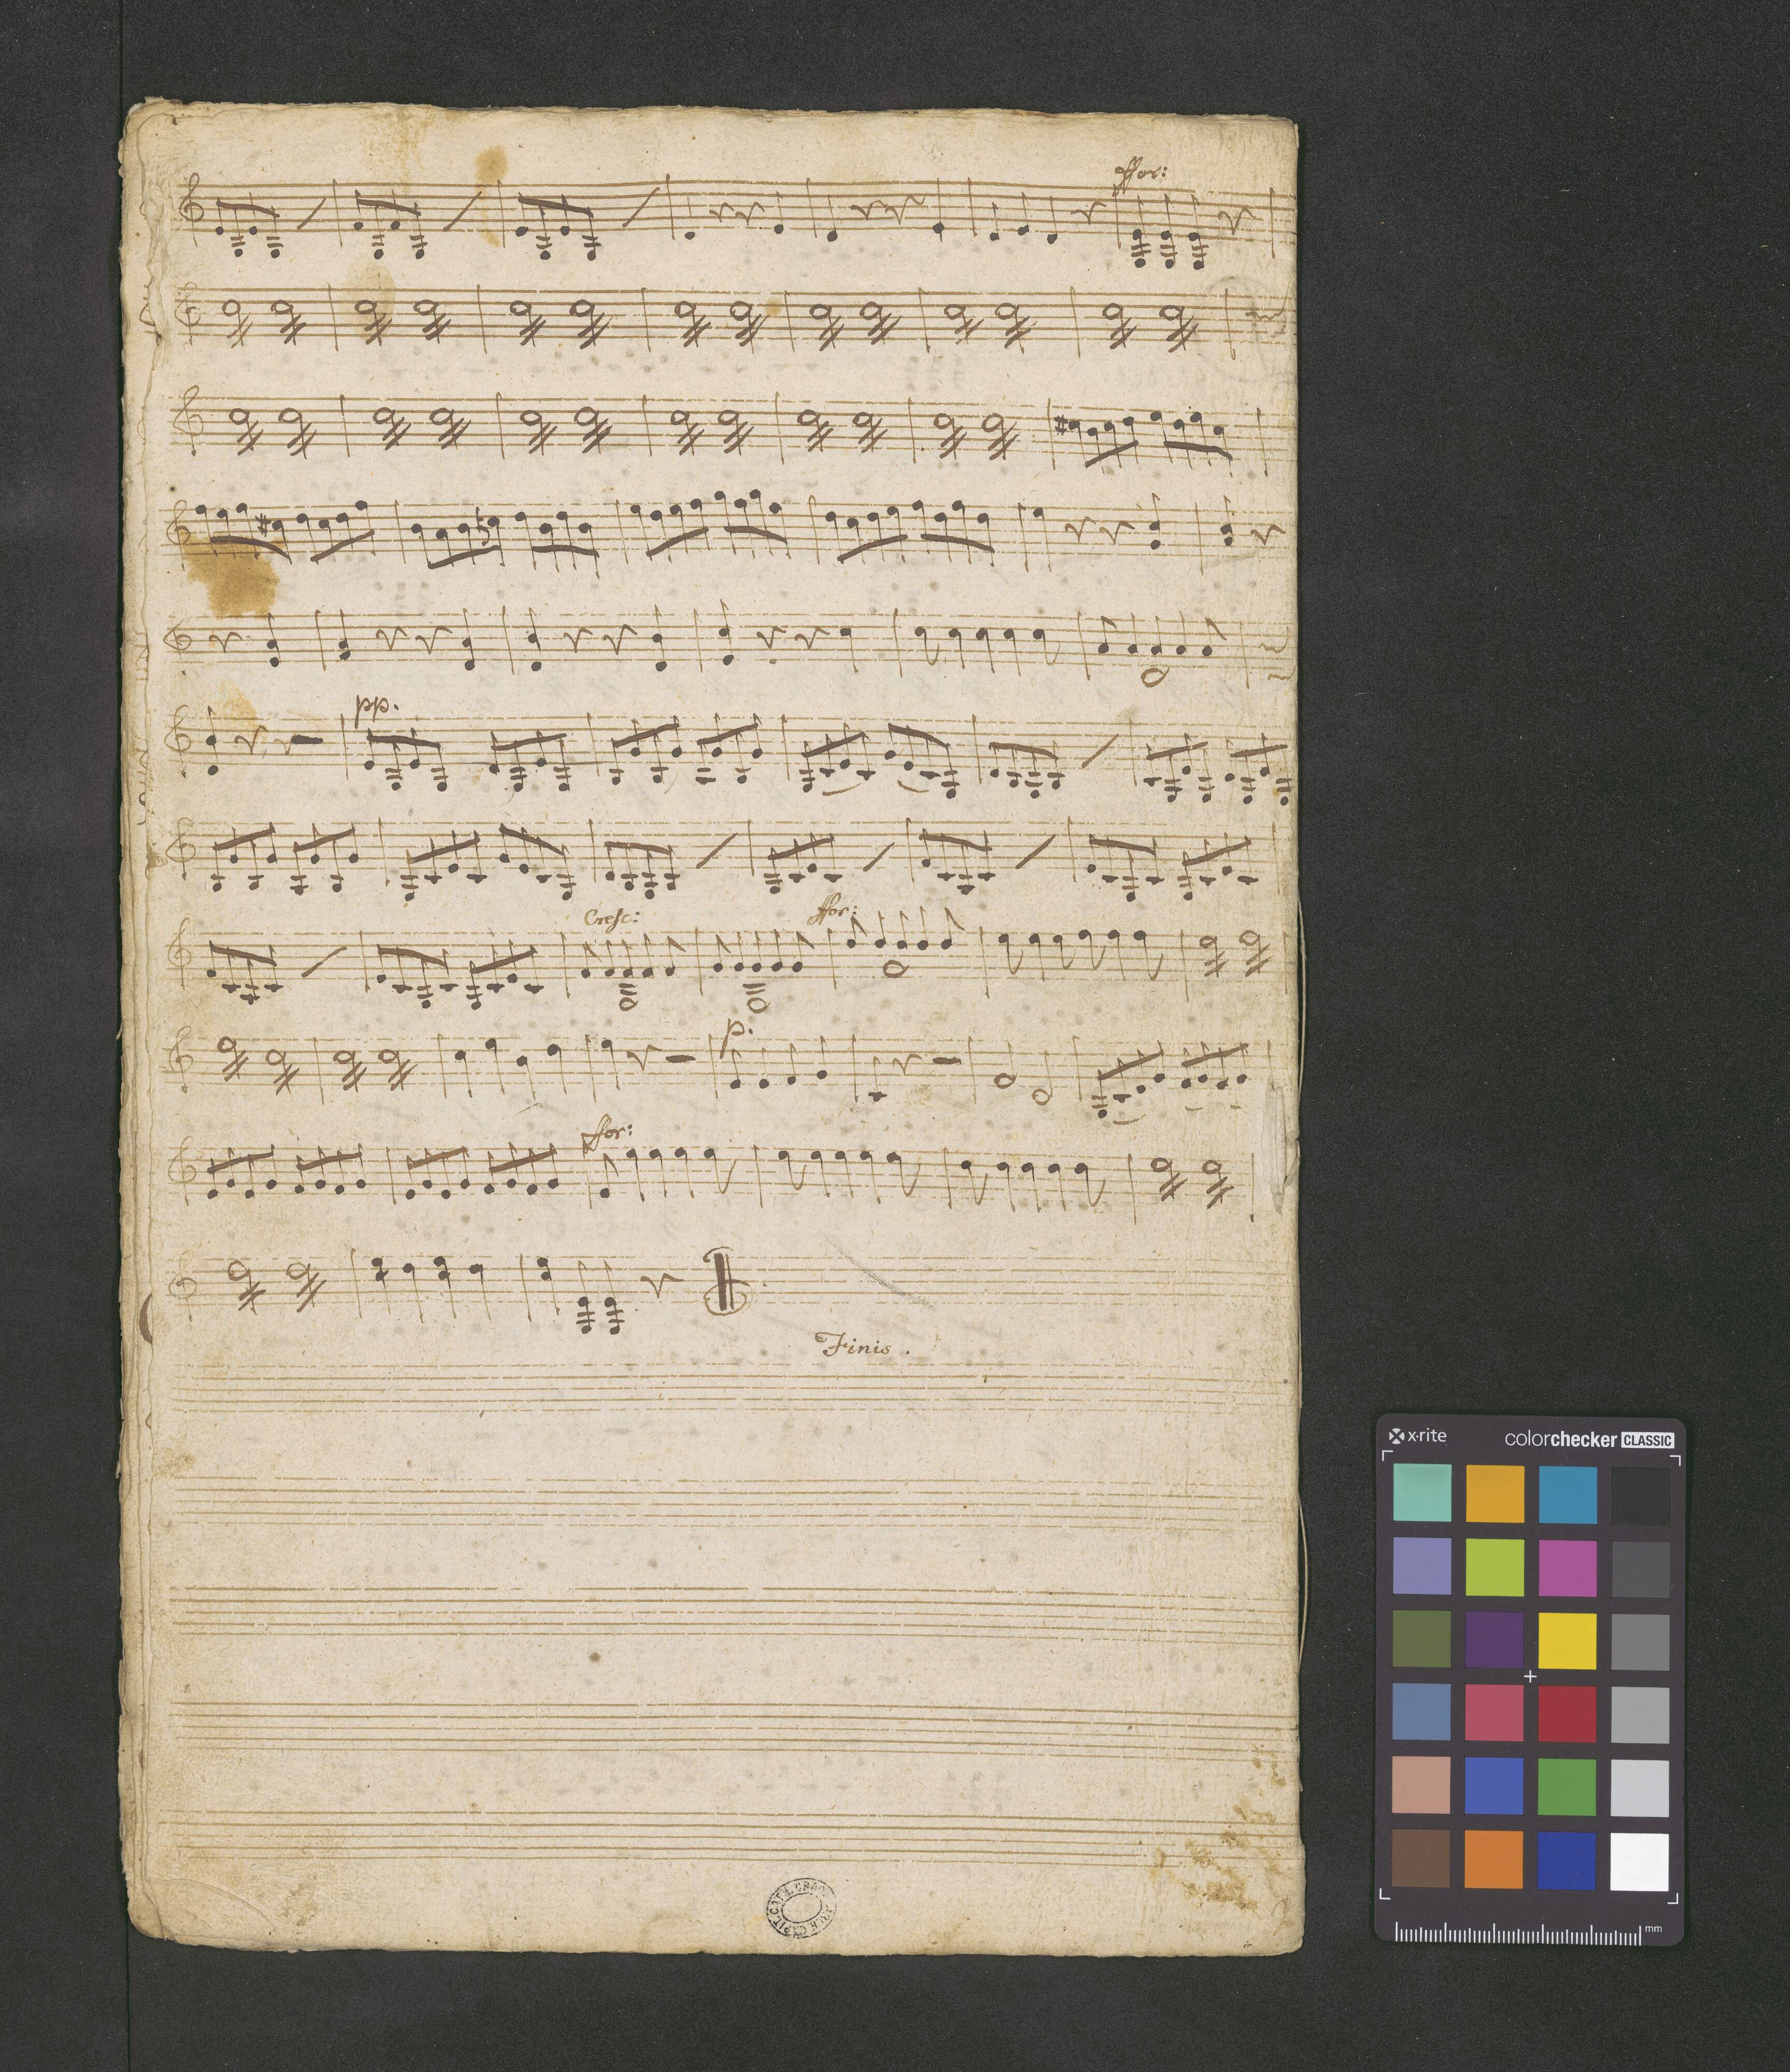 ffor:
pp.
Cresc: ffor:
p.
ffor:
Finis.
x·rite colorchecker CLASSIC
mm